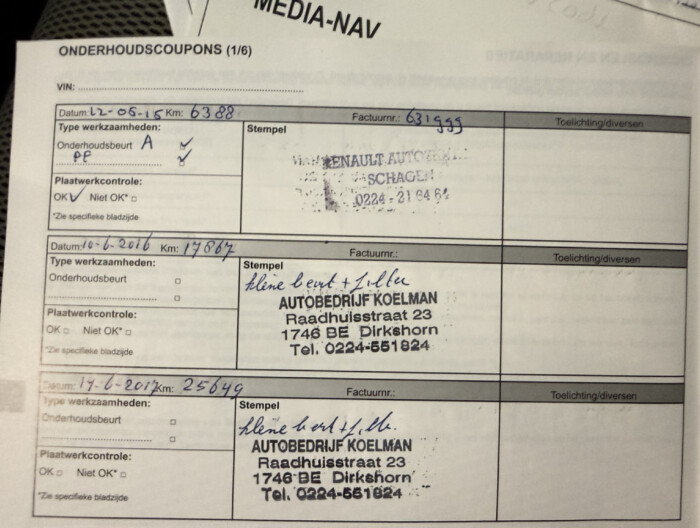 MEDIA-NAV
ONDERHOUDSCOUPONS (1/6)
VIN:
Datum: 12-05-15 Km: 6388 Factuurnr.: 631999 Toelichting/diversen
Type werkzaamheden: Stempel
Onderhoudsbeurt A ✓
PF ✓
RENAULT AUTO
Plaatwerkcontrole: SCHAGEN
OK ✓ Niet OK* 0224-21 64 64
*Zie specifieke bladzijde
Datum: 10-6-2016 Km: 17867 Factuurnr.: Toelichting/diversen
Type werkzaamheden: Stempel
Onderhoudsbeurt kleine beurt + filter
AUTOBEDRIJF KOELMAN
Raadhuisstraat 23
Plaatwerkcontrole: 1746 BE Dirkshorn
OK Niet OK* Tel. 0224-551824
*Zie specifieke bladzijde
Datum: 19-6-2017 Km: 25649 Factuurnr.: Toelichting/diversen
Type werkzaamheden: Stempel
Onderhoudsbeurt kleine beurt + filt.
AUTOBEDRIJF KOELMAN
Plaatwerkcontrole: Raadhuisstraat 23
OK Niet OK* 1746 BE Dirkshorn
*Zie specifieke bladzijde Tel. 0224-551824